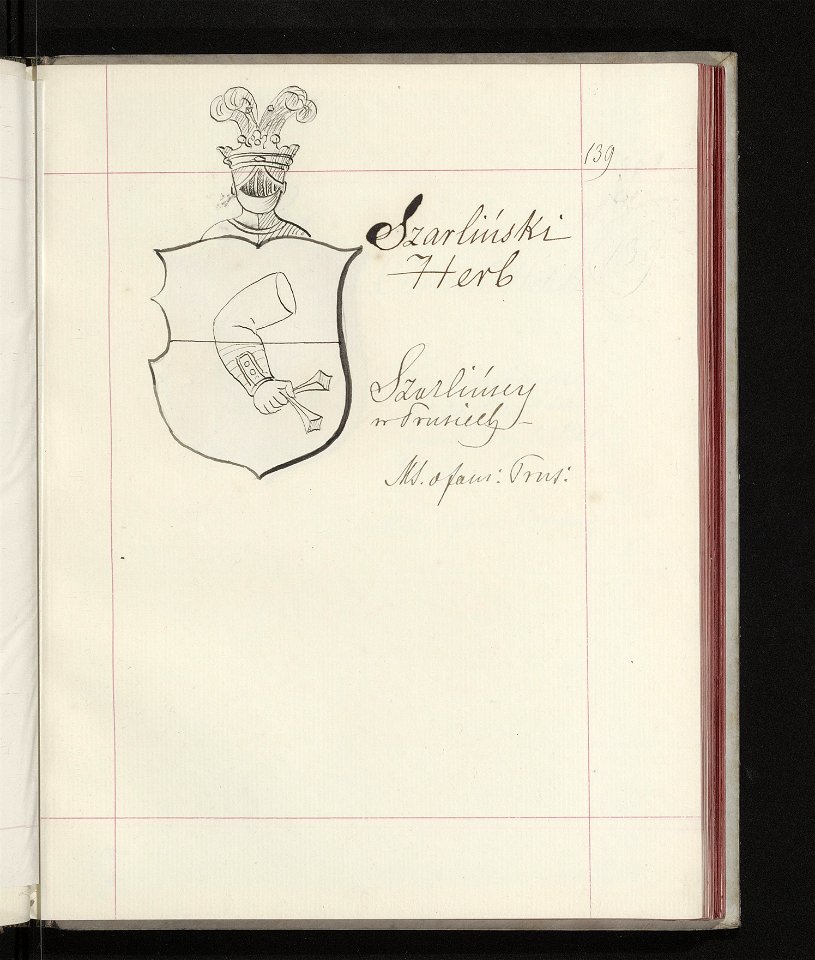 139
Szarliński
Herb
Szarlińscy
w Prusiech
MS. o fami: Prus: